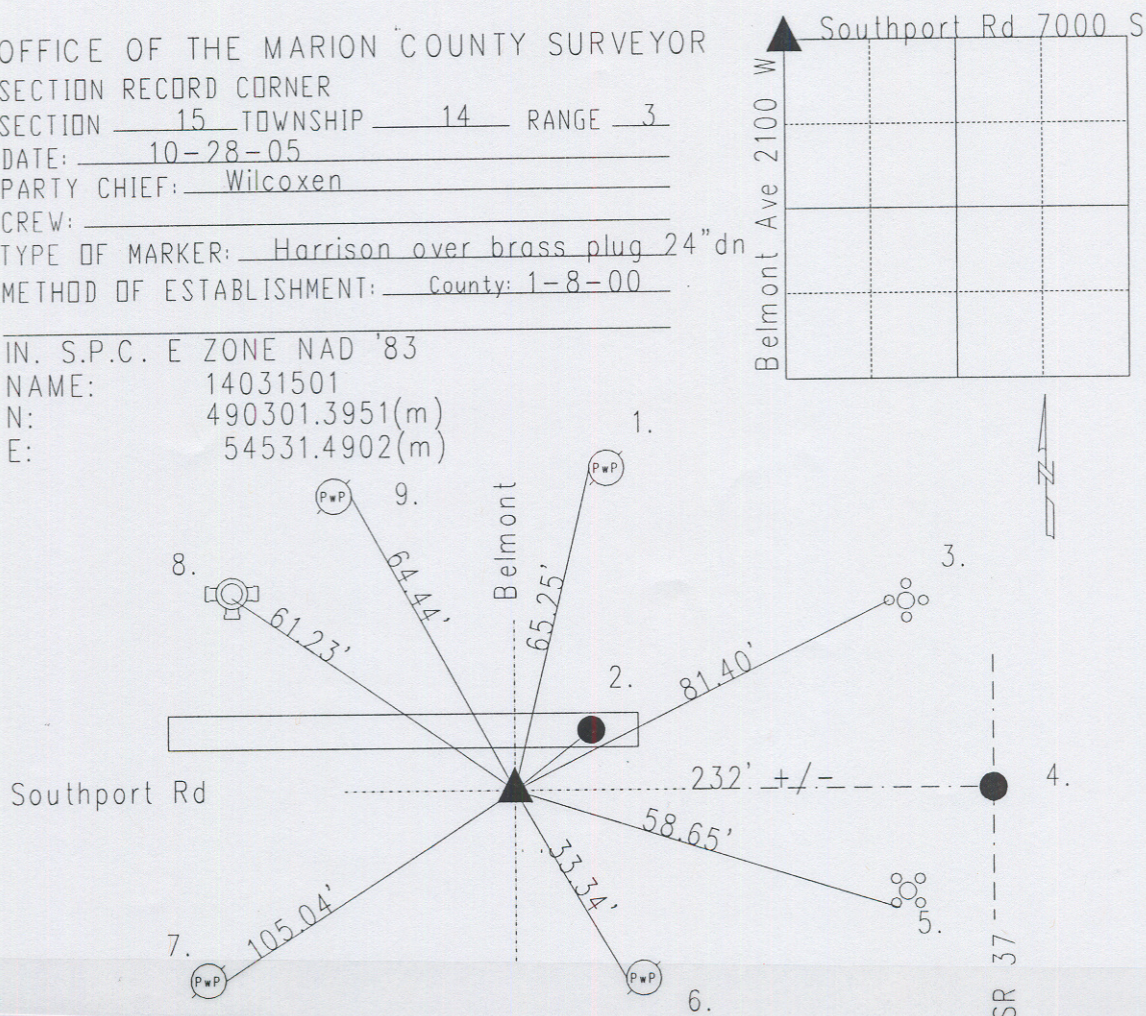 OFFICE OF THE MARION COUNTY SURVEYOR
SECTION RECORD CORNER
SECTION 15 TOWNSHIP 14 RANGE 3
DATE: 10-28-05
PARTY CHIEF: Wilcoxen
CREW:
TYPE OF MARKER: Harrison over brass plug 24"dn
METHOD OF ESTABLISHMENT: County: 1-8-00
IN. S.P.C. E ZONE NAD '83
NAME: 14031501
N: 490301.3951(m)
E: 54531.4902(m)
Southport Rd 7000 S
Belmont Ave 2100 W
N
1.
PwP
9.
PwP
Belmont
8.
3.
64.44'
65.25'
61.23'
2.
81.40'
Southport Rd
232' +/-
4.
58.65'
33.34'
105.04'
5.
7.
PwP
PwP
6.
SR 37